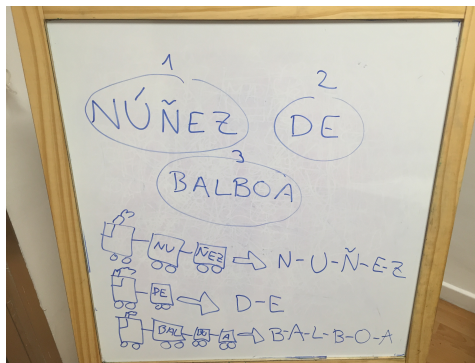 1
2
NÚÑEZ DE
3
BALBOA
NU ÑEZ N-U-Ñ-E-Z
DE D-E
BAL BO A B-A-L-B-O-A